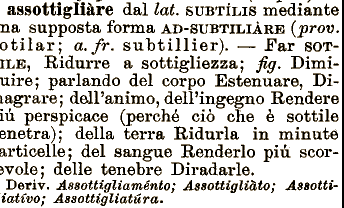 assottigliàre dal lat. SUBTÍLIS mediante
na supposta forma AD-SUBTILIÀRE (prov.
otilar; a. fr. subtillier). — Far SOT-
ILE, Ridurre a sottigliezza; fig. Dimi-
uire; parlando del corpo Estenuare, Di-
nagrare; dell'animo, dell'ingegno Rendere
iú perspicace (perché ciò che è sottile
enetra); della terra Ridurla in minute
articelle; del sangue Renderlo piú scor-
evole; delle tenebre Diradarle.
Deriv. Assottigliaménto; Assottigliàto; Assotti-
iatívo; Assottigliatúra.